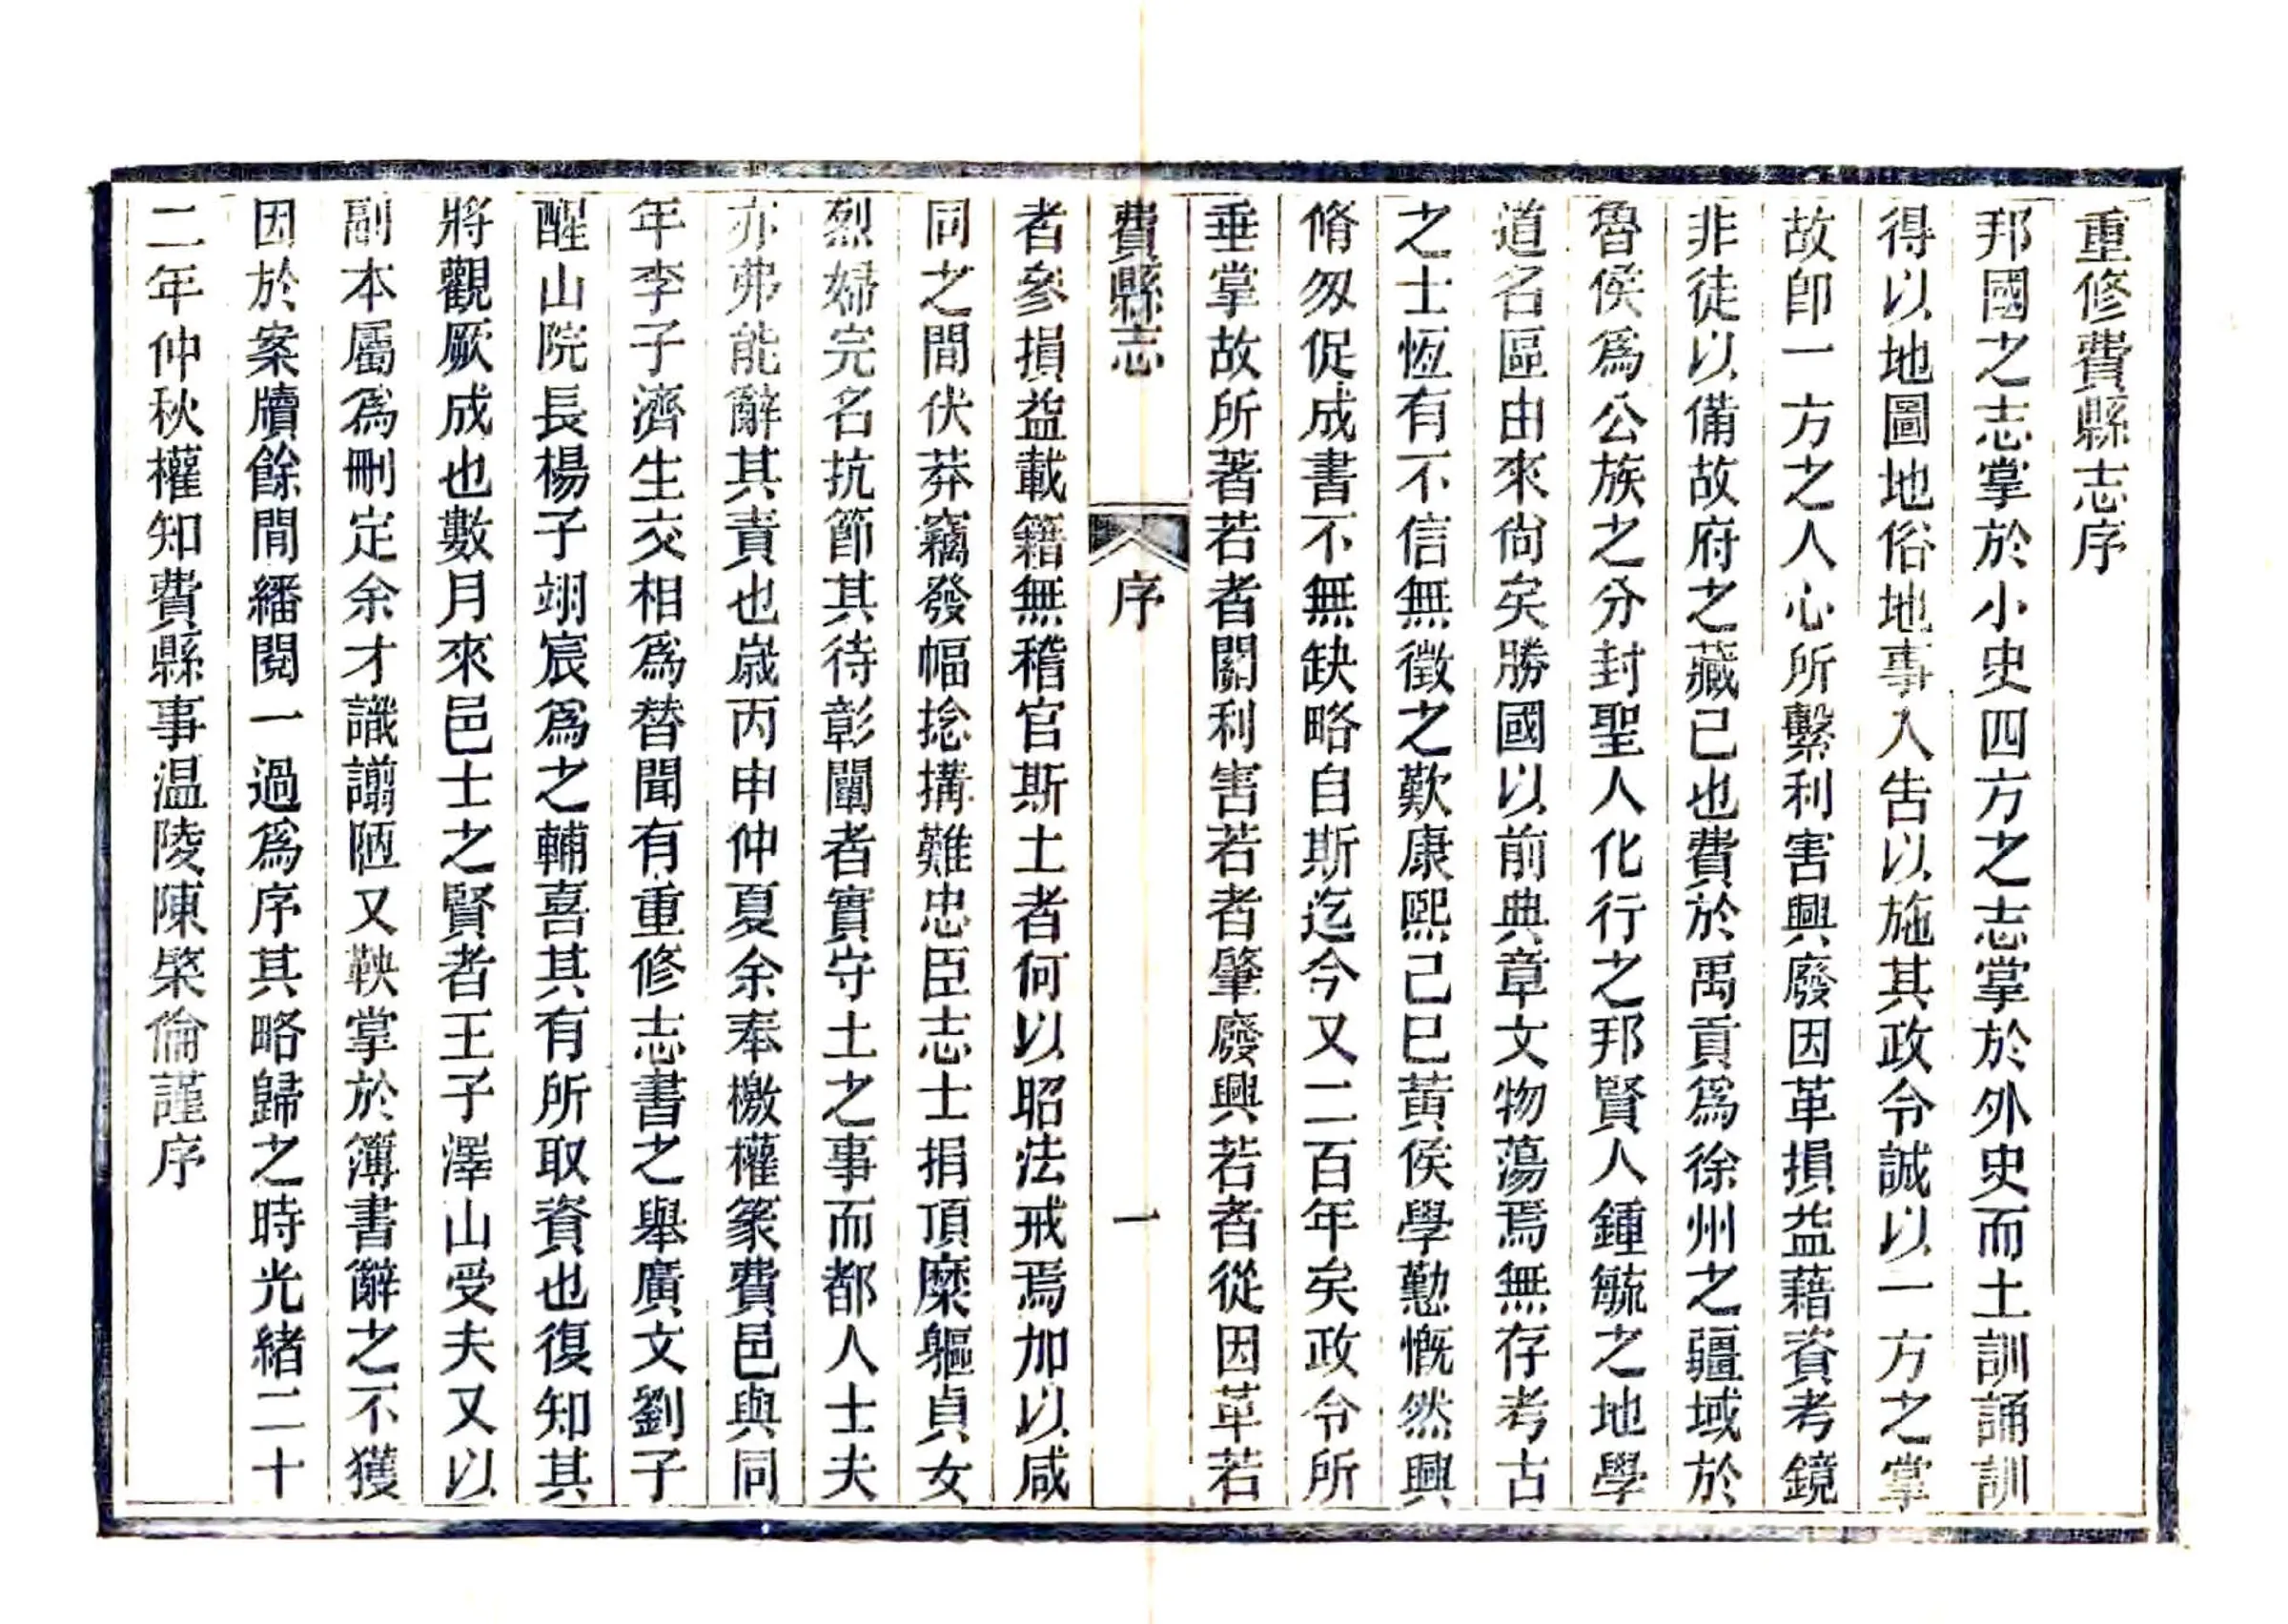 重修費縣志序
邦國之志掌於小史四方之志掌於外史而土訓誦訓
得以地圖地俗地事入告以施其政令誠以一方之掌
故卽一方之人心所繫利害興廢因革損益藉資考鏡
非徒以備故府之藏已也費於禹貢爲徐州之疆域於
魯侯爲公族之分封聖人化行之邦賢人鍾毓之地學
道名區由來尙矣勝國以前典章文物蕩焉無存考古
之士恆有不信無徵之歎康熙己巳黃侯學懃慨然興
脩匆促成書不無缺略自斯迄今又二百年矣政令所
垂掌故所著若者關利害若者肇廢興若者從因革若
費縣志 序 一
者參損益載籍無稽官斯土者何以昭法戒焉加以咸
同之間伏莽竊發幅捻搆難忠臣志士捐頂糜軀貞女
烈婦完名抗節其待彰闡者實守土之事而都人士夫
亦弗能辭其責也歲丙申仲夏余奉檄權篆費邑與同
年李子濟生交相爲替聞有重修志書之舉廣文劉子
醒山院長楊子翊宸爲之輔喜其有所取資也復知其
將觀厥成也數月來邑士之賢者王子澤山受夫又以
副本屬爲刪定余才識譾陋又鞅掌於簿書辭之不獲
因於案牘餘閒繙閱一過爲序其略歸之時光緒二十
二年仲秋權知費縣事温陵陳棨倫謹序